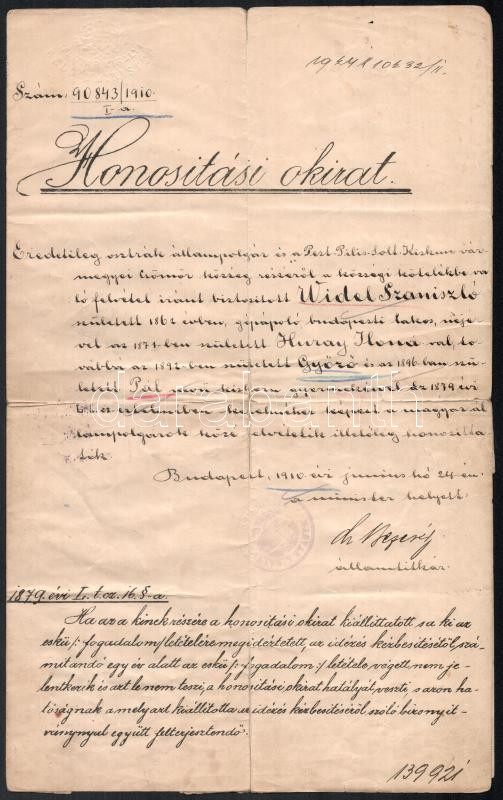 1924 X 10632/II.
Szám: 90843/1910.
I-a.
Honositási okirat.
Eredetileg osztrák állampolgár és a Pest-Pilis-Solt-Kiskun vár-
megyei Csömör község részéről a községi kötelékbe va-
ló felvétel iránt biztositott Widel Szaniszló
született 1862 évben, gépápoló budapesti lakos, neje-
vel az 1871-ben született Huray Ilona val, to-
vábbá az 1892-ben született Győző és az 1896-ban szü-
letett Pál nevű kiskorú gyermekeivel Az 1879 évi
értelmében ezek képest a magyar ál-
lampolgárok közé felvétetik illetőleg honositta-
tik.
Budapest, 1910. évi junius hó 24-én.
a minister helyett:
államtitkár.
1879. évi L. t. cz. 16. §-a.
Ha az a kinek részére a honositási okirat kiállittatott, s a ki az
eskü/: fogadalom/letételére megidéztetett, az idézés kézbesitésétől, szá-
mitandó egy év alatt az eskü/: fogadalom:/ letétele végett nem je-
lentkezik és azt le nem teszi, a honositási okirat hatályát veszti, s azon ha-
tóságnak a mely azt kiállitotta az idézés kézbesitéséről szóló bizonyit-
ványnyal együtt felterjesztendő.
139921
darabanth